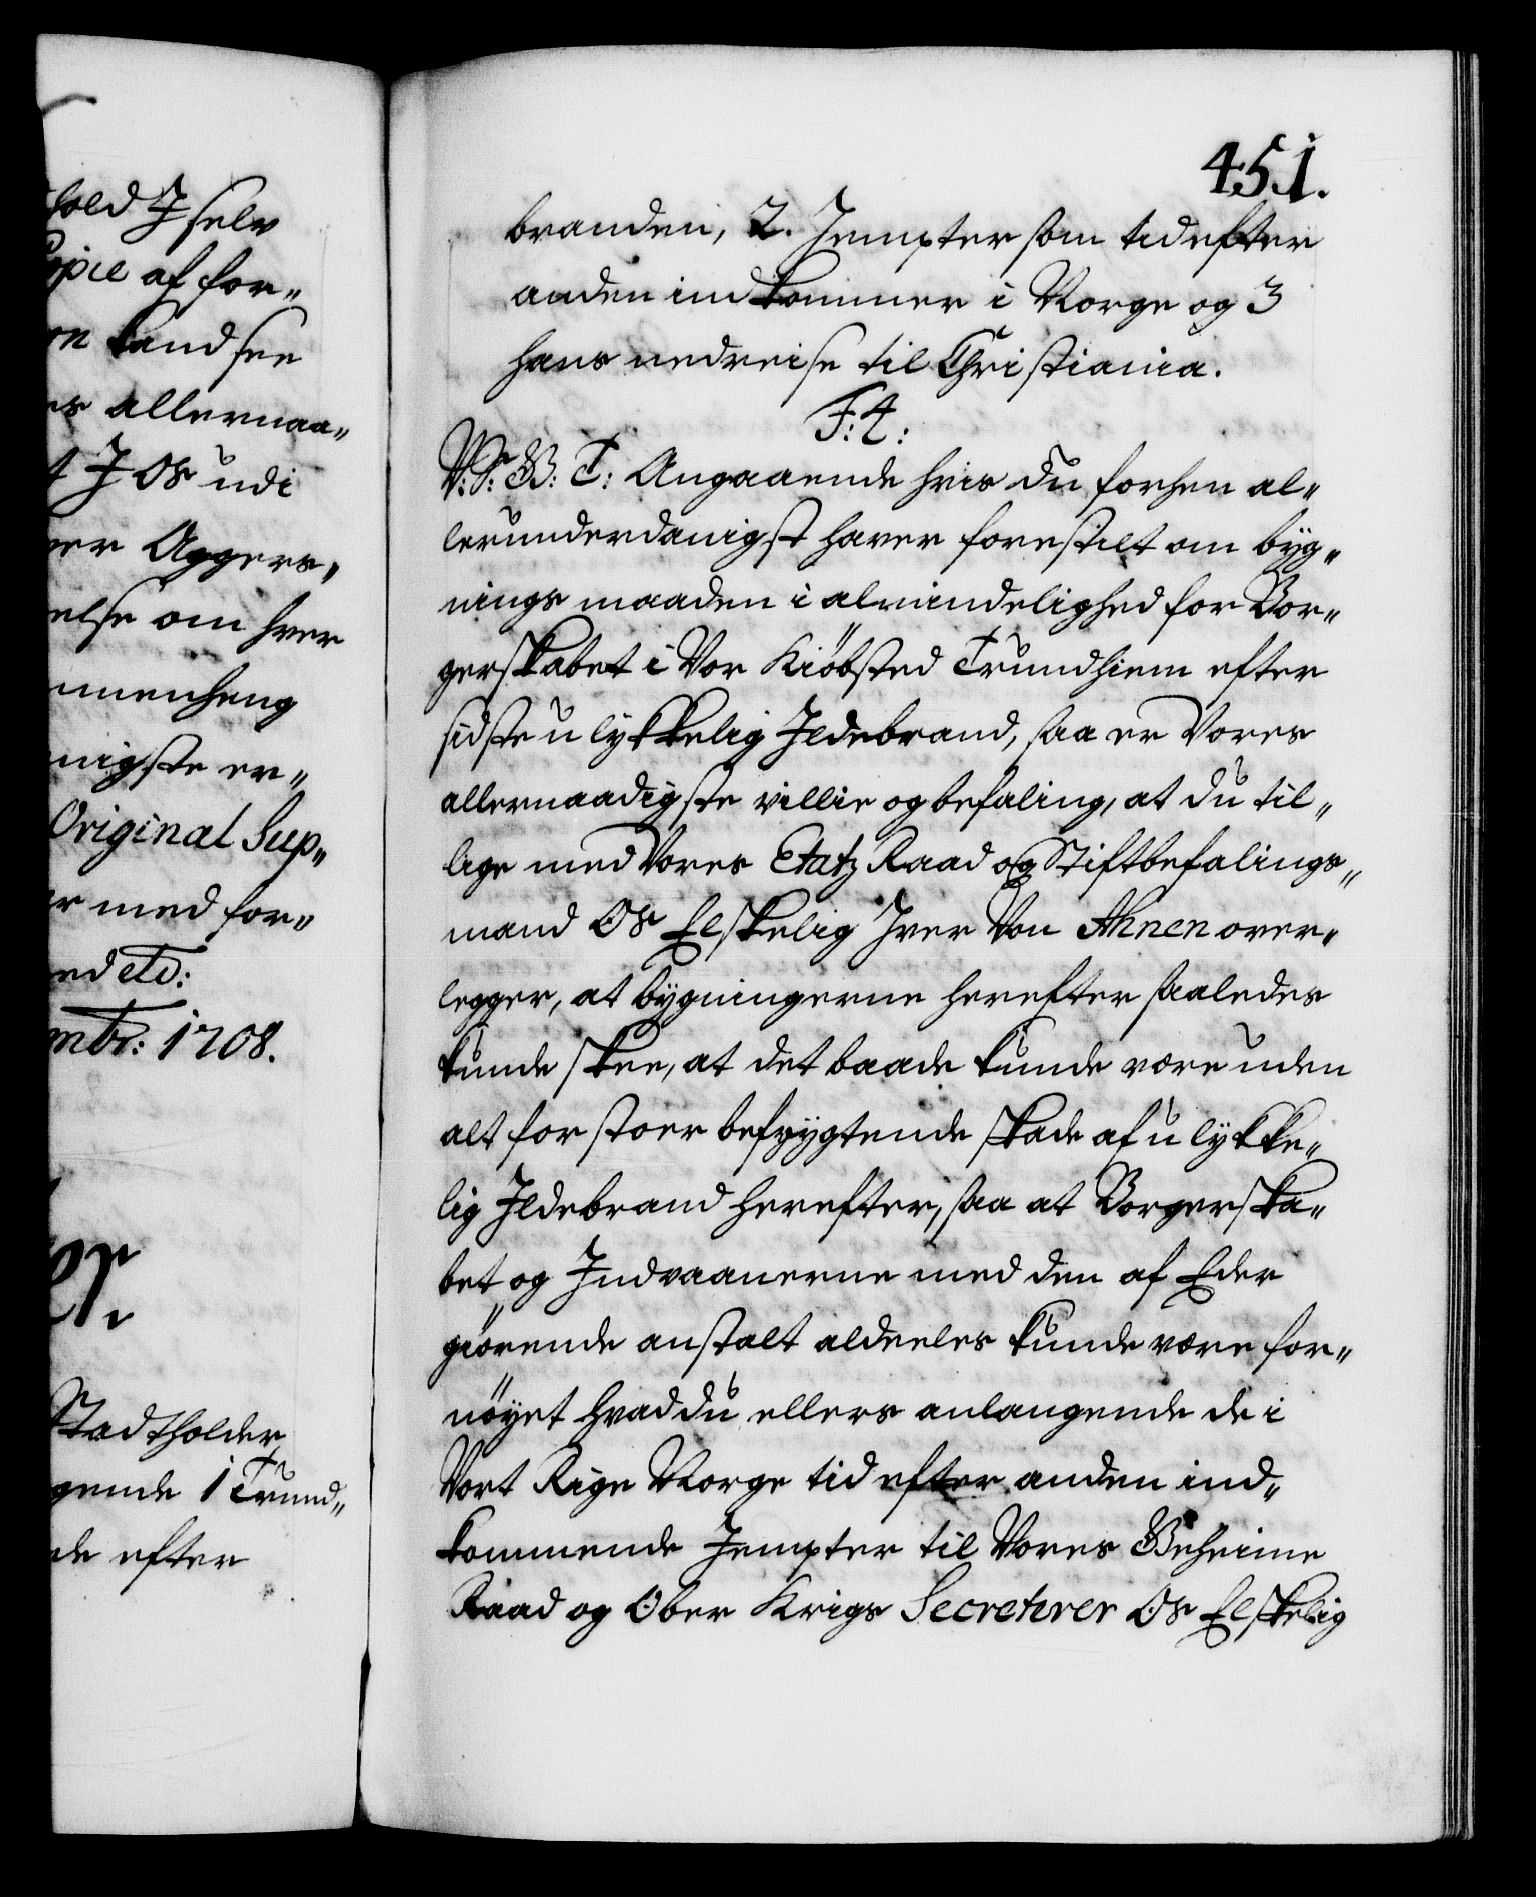 hold J selv
Copie af for„
on kand see
es allernaa„
t J Os udi
ver Aggers„
else om hver
mmenheng
nigste er„
Original Sup„
r med for„
ed etc:
mbr: 1708.
Stadtholder
gende 1 Trund„
de efter
451.
branden, 2. Jempter som tid efter
anden indkommer i Norge og 3
hans nedreise til Christiania.
F: 4:
V: S: G: T: Angaaende hvis du forhen al„
lerunderdanigst haver forestilt om byg„
nings maaden i almindelighed for Bor„
gerskabet i Vor Kiöbsted Trundhiem efter
sidste ulykkelig Jldebrand, saa er Vores
allernaadigste villie og befaling, at du til„
lige med Vores Etatz Raad og Stiftbefalings„
mand Os Elskelig Jver Von Ahnen over„
legger, at bygningerne herefter saaledes
kunde skee, at det baade kunde være uden
alt for stoer befrygtende skade af ulykke„
lig Jldebrand herefter, saa at Borgerska„
bet og Jndvaanerne med den af Eder
giörende anstalt aldeeles kunde være for„
nöyet hvad du ellers anlangende de i
Vort Rige Norge tid efter anden ind„
kommende Jempter til Vores Geheime
Raad og Ober Krigs Secreterer Os Elskelig